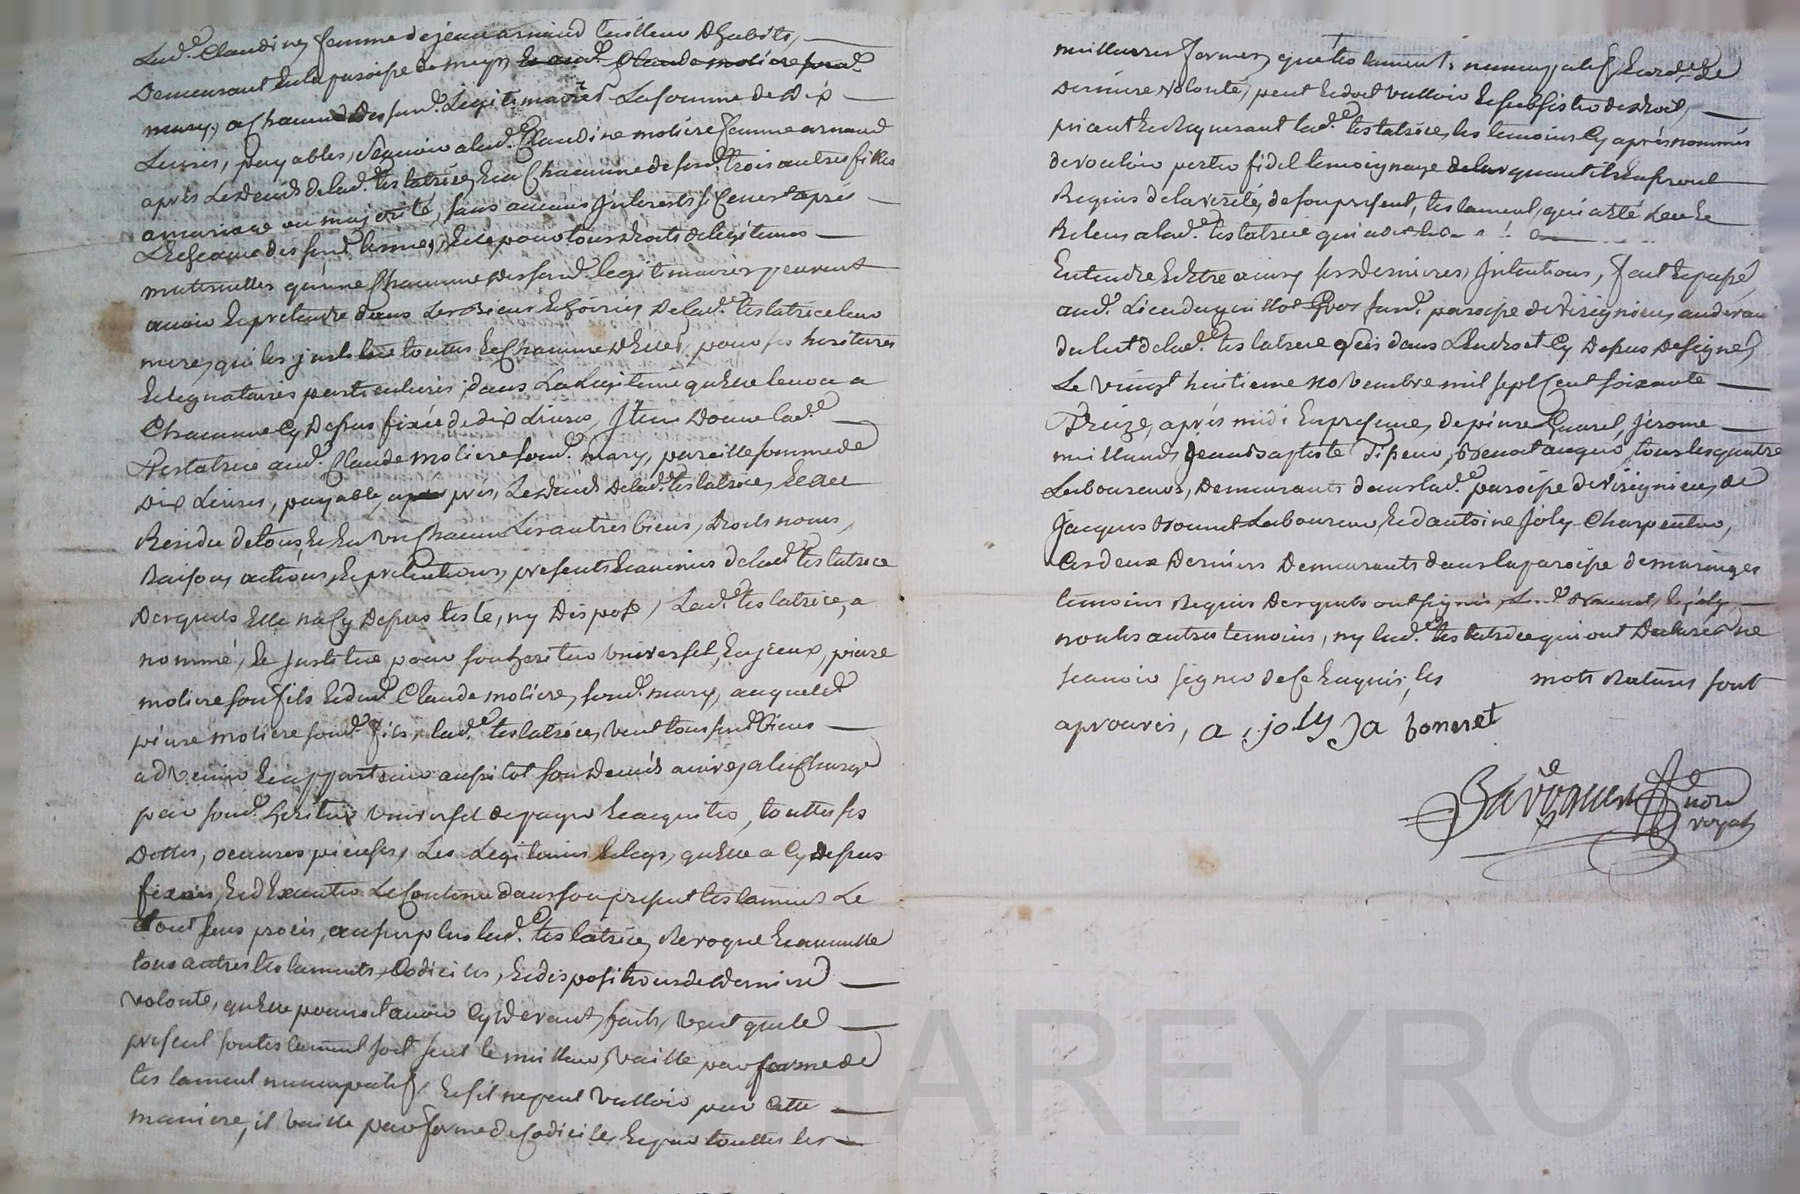 Lad.e Claudine, femme de jean arnaud tailleur d'habits,
Demeurant en la paroisse de meys, Claude moliere
mary, a chacun des surd. Legitimaires La somme de dix
Livres, payables, sçavoir a lad.e Claudine moliere femme arnaud
après Le deceds de lad.e testatrice, et a chacune de ses trois autres filles
a mariage ou majorité, sans aucuns jnterests si ce n'est après
L'echeance desd. termes, et ce pour tous droits de legitimes
maternelles qu'une chacune desd. legitimaires peuvent
avoir et pretendre dans Les Biens et hoiries de lad.e testatrice leur
mere, qui les jnstitue toutes et chacune d'elles, pour ses heritieres
et legataires particulieres, dans La Legitime qu'elle leur a
chacune cy depus fixée de dix Livres, jtem donne lad.e
Testatrice aud. Claude moliere sond. mary, pareille somme de
dix Livres, payable, après Le deceds de lad.e testatrice, et au
Residu de tous et un chacun Les autres biens, droits noms,
Raisons, actions, et pretentions, presents et avenirs de lad.e testatrice
desquels elle n'a cy depus testé, ny disposé, Lad.e testatrice, a
nommé, et jnstitue pour son heritier universel, et a jceux, pierre
moliere son fils et dud. Claude moliere, sond. mary, auquel d.
pierre moliere sond. fils, lad.e testatrice, veut tous sesd. biens
advenir et appartenir aussitot son deceds arrivé, a la charge
par sond. heritier universel de payer et acquitter, touttes ses
dettes, oeuvres pieuses, Les Legitimes et legs, qu'elle a cy depus
fixées, et d'executer Le contenu dans son present testament Le
tout sans procès, au surplus lad.e testatrice, Revoque et annulle
tous autres testaments, Codiciles, et dispositions de derniere
volonté, qu'elle pourroit avoir cy devant, faits, veut que le
present son testament soit seul le meilleur, vaille par forme de
testament nuncupatif, et s'il ne peut valloir par cette
maniere, il vaille par forme de Codicile, et par touttes les
meilleures formes, que testament nuncupatif, et ord.ce de
Derniere volonté, peut et doit valloir et subsister de droit,
priant et Requerant lad.e testatrice, les temoins cy après nommés
de vouloir porter fidel temoignage quant ils en seront
Requis de la verité, de son present, testament, qui a eté leu et
Releu a lad.e testatrice qui a dit
Entendre et etre ainsy ses dernieres jntentions, fait et passé,
aud. Lieu du paroisse de viregnieu, au devant
du lit de lad.e testatrice dans L'endroit cy depus designé,
Le vingt huitieme novembre mil sept cent soixante
Treize, après midi en presence, de pierre jerome
jean baptiste Benoit tous les quatre
Laboureurs, demeurants dans lad.e paroisse de viregnieu, de
jacques Laboureur, et d'antoine joly charpentier,
Ces deux derniers demeurants dans la paroisse de maringes
temoins Requis desquels ont signé, et joly
non les autres temoins, ny lad.e testatrice qui ont declarés ne
scavoir signer de ce enquis, les mots Raturés sont
aprouvés, a . joly ja bonnet
no.re
royal